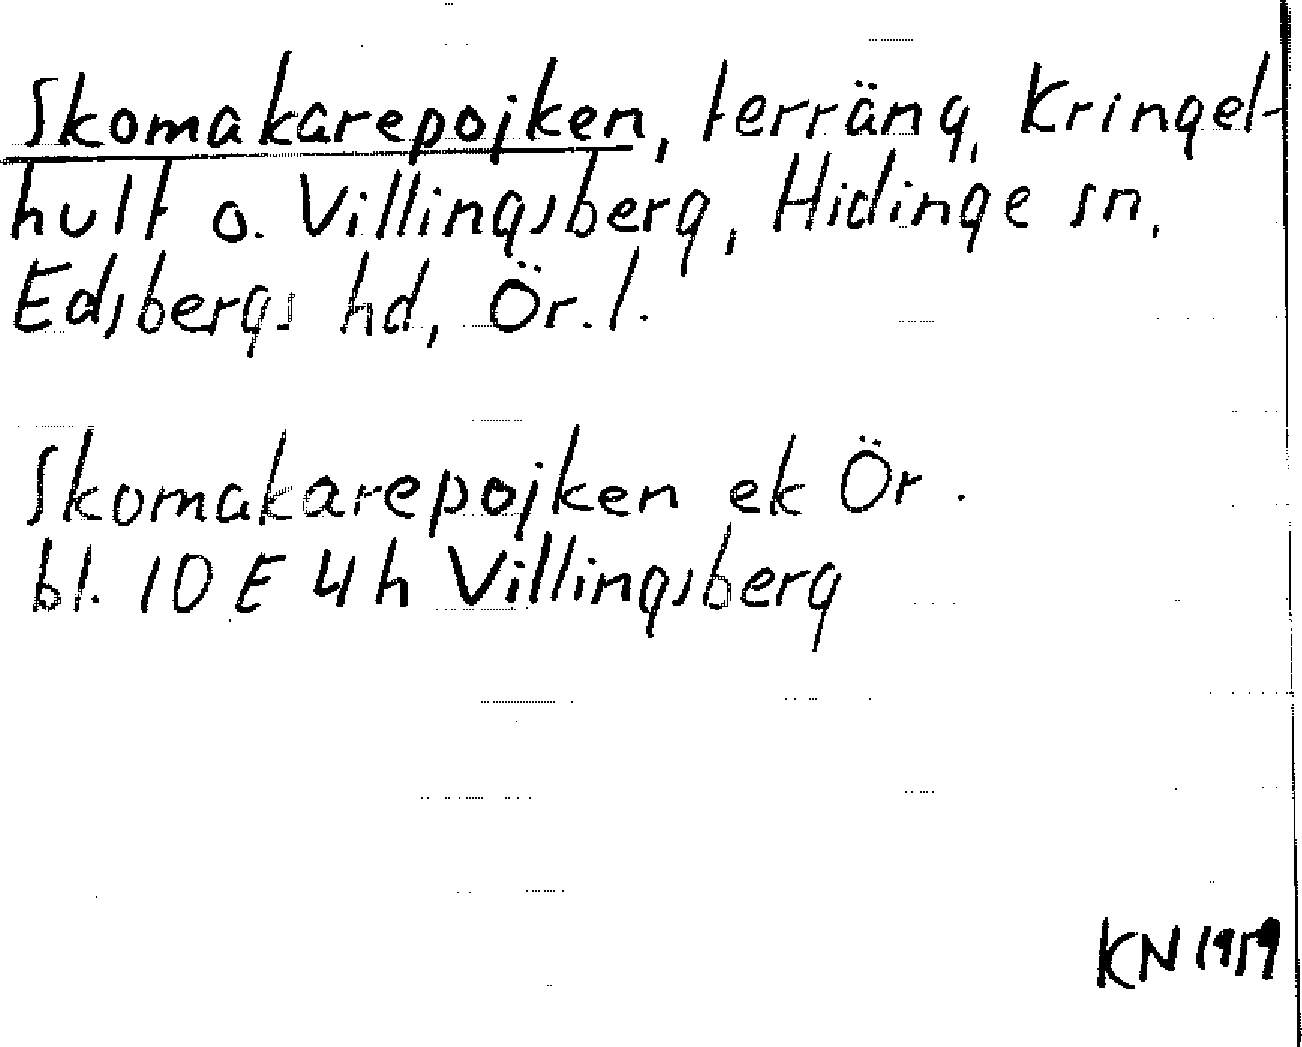 Skomakarepojken, terräng, Kringel-
hult o. Villingsberg, Hidinge sn,
Edsbergs hd, Ör. l.
Skomakarepojken ek Ör.
bl. 10 E 4 h Villingsberg
KN 1959